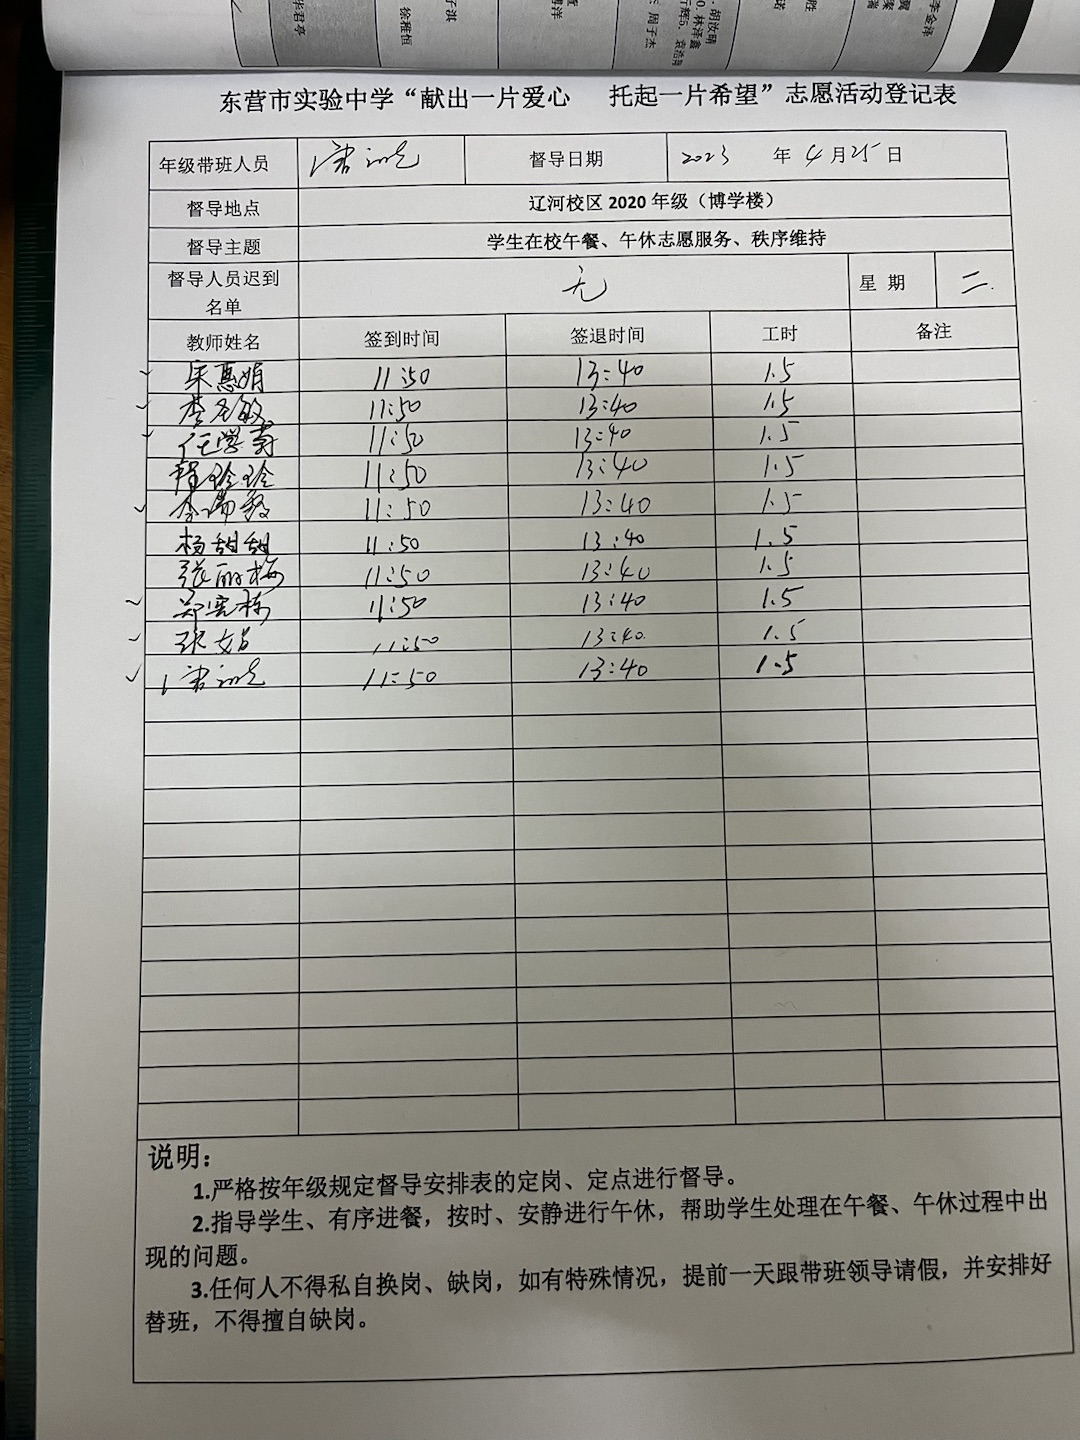 李金泽
胡汝晴
林泽鑫
周子杰
徐稚恒
华君亭
东营市实验中学“献出一片爱心 托起一片希望”志愿活动登记表
年级带班人员 督导日期 2023 年 4 月 25 日
督导地点 辽河校区 2020 年级（博学楼）
督导主题 学生在校午餐、午休志愿服务、秩序维持
督导人员迟到名单 无 星 期 二.
教师姓名 签到时间 签退时间 工时 备注
宋惠娟 11:50 13:40 1.5
11:50 13:40 1.5
11:50 13:40 1.5
玲玲 11:50 13:40 1.5
李瑞敏 11:50 13:40 1.5
杨甜甜 11:50 13:40 1.5
张丽梅 11:50 13:40 1.5
郑宪栋 11:50 13:40 1.5
11:50 13:40 1.5
11:50 13:40 1.5
说明：
1.严格按年级规定督导安排表的定岗、定点进行督导。
2.指导学生、有序进餐，按时、安静进行午休，帮助学生处理在午餐、午休过程中出
现的问题。
3.任何人不得私自换岗、缺岗，如有特殊情况，提前一天跟带班领导请假，并安排好
替班，不得擅自缺岗。